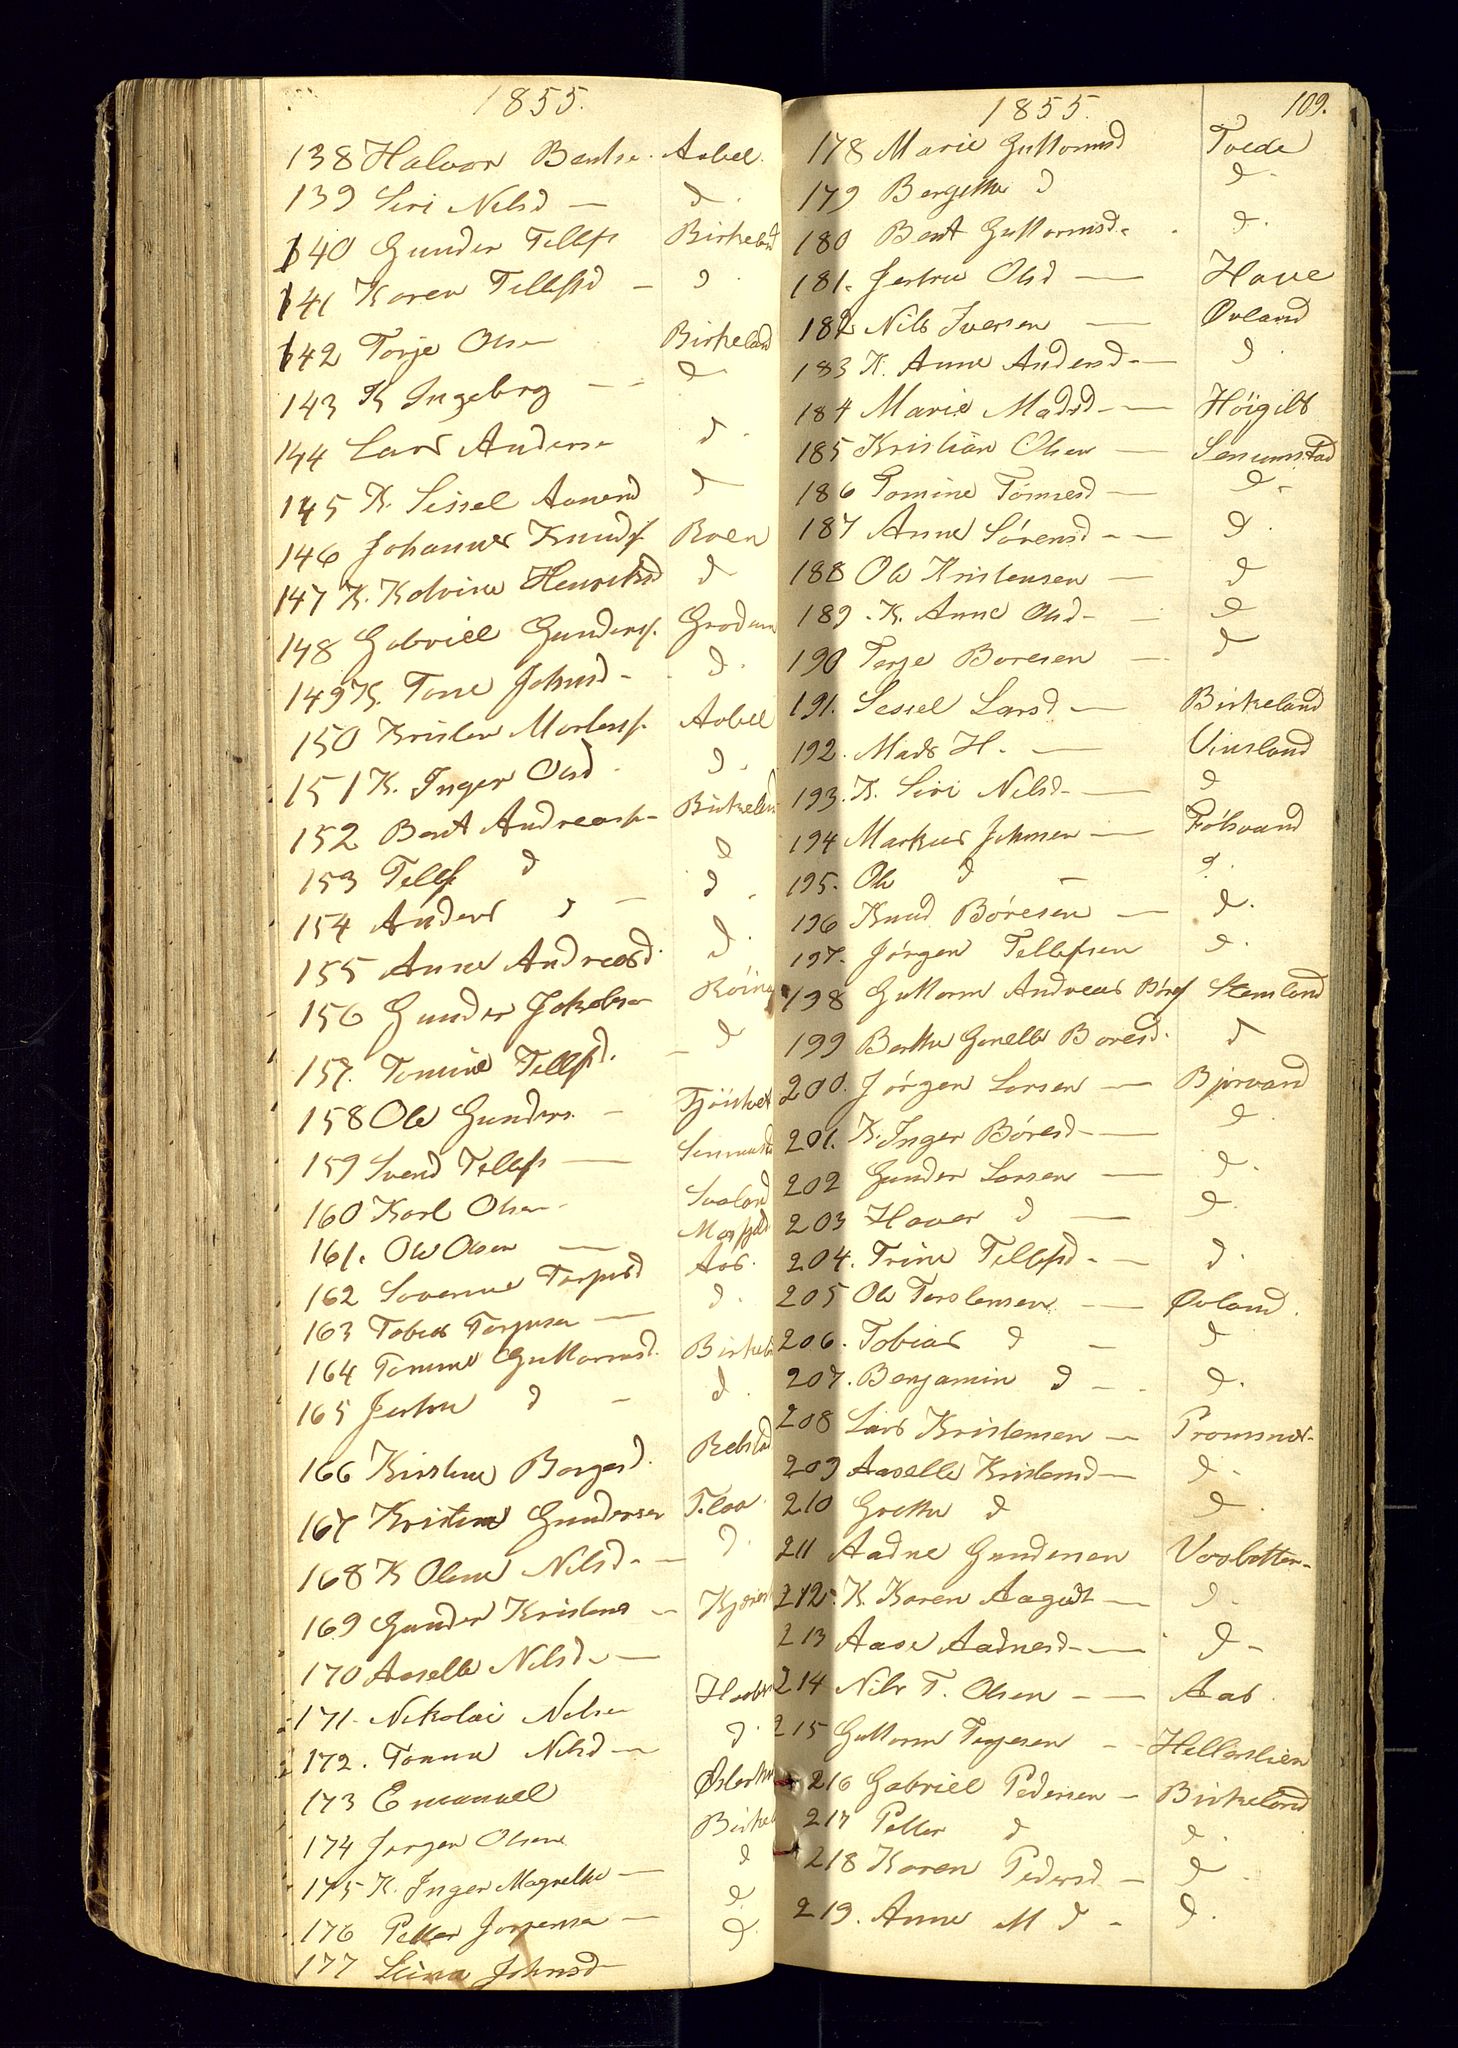 1855.
138 Halvor Bentse. Aabel.
139 Siri Nilsd — d.
140 Gunder Tellefs Birkeland
141 Karen Tellefsd — d.
142 Torje Olsen Birkeland
143 K Ingebrg — — d
144 Lars Anderse d.
145 K. Sissel Aanend d
146 Johannes Knuds. Boen
147 K. Kolvine Henriksd d
148 Gabriell Gunders. Grodum
149 K. Tone Johnsd - d.
150 Kristen Mortens. Aabel
151 K. Inger Olsd. d.
152 Bent Andreass- Birkelan
153 Tellef d d
154 Anders d — d.
155 Anne Andreasd. d.
156 Gunder Jakobsen Röine
157. Tomine Tellefsd. — d
158 Ole Gunders. — Fjöisket
159 Svend Tellefs — Senumsd
160 Karl Olsen Svaland
161. Ole Olsen — Mosfjeld
162 Soverine Torjusd Aas.
163 Tobias Torjusen — d.
164 Tomine Guttormsd. Birkela
165 Jertru d — d.
166 Kirstine Borgesd. Rebstad
167 Kristen Gundersen Flaa.
168 K Olene Nilsd. — d.
169 Gunder Kristens —
170 Aaselle Nilsd. —
171. Nikolai Nilsen
172. Tomine Nilsd — d.
173 Emanuel
174 Jørgen Olsen Birkel
175 K. Inger Magrethe — d
176 Petter Jorgensen — d
177 Johnsd d.
1855. 109.
178 Marie Guttormsd Tvede
179 Bergithe d d.
180 Bent Guttormsd. d.
181. Jertru Olsd — Have
182 Nils Iversen — Øvland
183 K. Anne Andersd. — d.
184 Marie Madsd — Höigilt
185 Kristian Olsen — Senumstad
186 Tomine Tønnesd — d.
187 Anne Sørensd — — d.
188 Ole Kristensen — d
189. K. Anne Olsd — d
190 Terje Boresen — d
191. Sessel Larsd — Birkeland
192. Mads H. — Vinsland
193. K. Siri Nilsd — d
194 Markus Johnsen — Følsvand
195. Ole d — d.
196 Knud Børesen — d.
197. Jørgen Tellefsen d.
198 Guttorm Andreas Børes Stemland
199 Berthe Gunelle Boresd. d
200. Jørgen Larsen — Bjorvand
201. K. Inger Børesd — d
202 Gunder Larsen — d.
203 Haver d — d.
204. Trine Tellefsd. — d.
205 Ole Terslensen — Øvland.
206. Tobias d — d
207. Benjamin d — d.
208 Lars Kristensen — Promsnes-
209 Aaselle Kristensd — d.
210 Grethe d d.
211 Aadne Gundersen Vasbotten-
212. K. Karen Aagodt — d.
213 Aase Aadnesd — d —
214 Nils T. Olsen — — Aas
215 Guttorm Terjesen — Hellerslien
216 Gabriel Pedersen — Birkeland
217 Petter d d.
218 Karen Pedersd — d.
219. Anne M d — d.